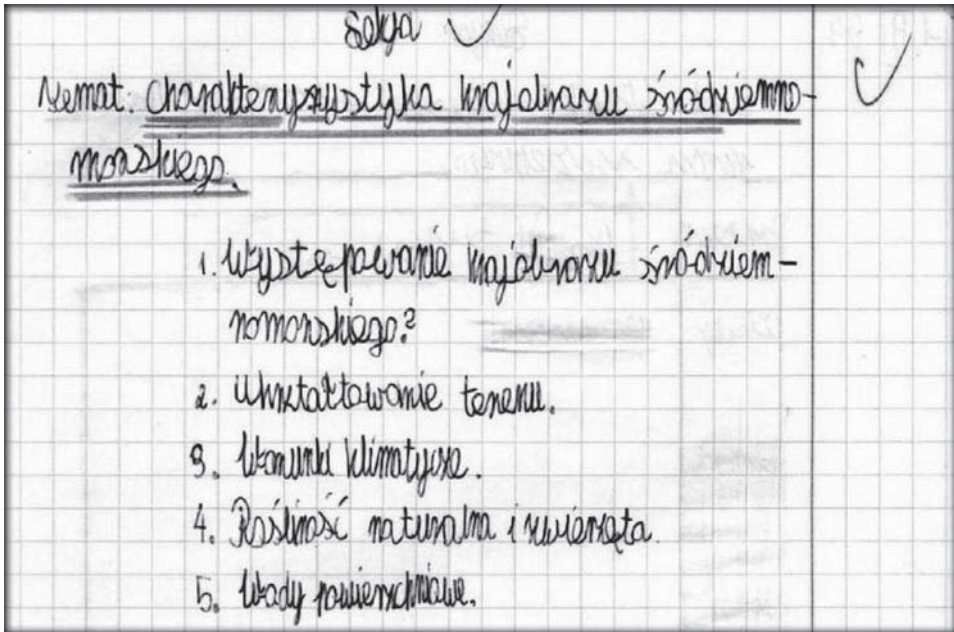 Lekcja
Temat: Charakteryzystyka krajobrazu śródziemno-
morskiego.
1. Występowanie krajobrazu śródziem-
nomorskiego?
2. Ukształtowanie terenu.
3. Warunki klimatycze.
4. Rośliność naturalna i zwierzęta.
5. Wady powierzchniowe.